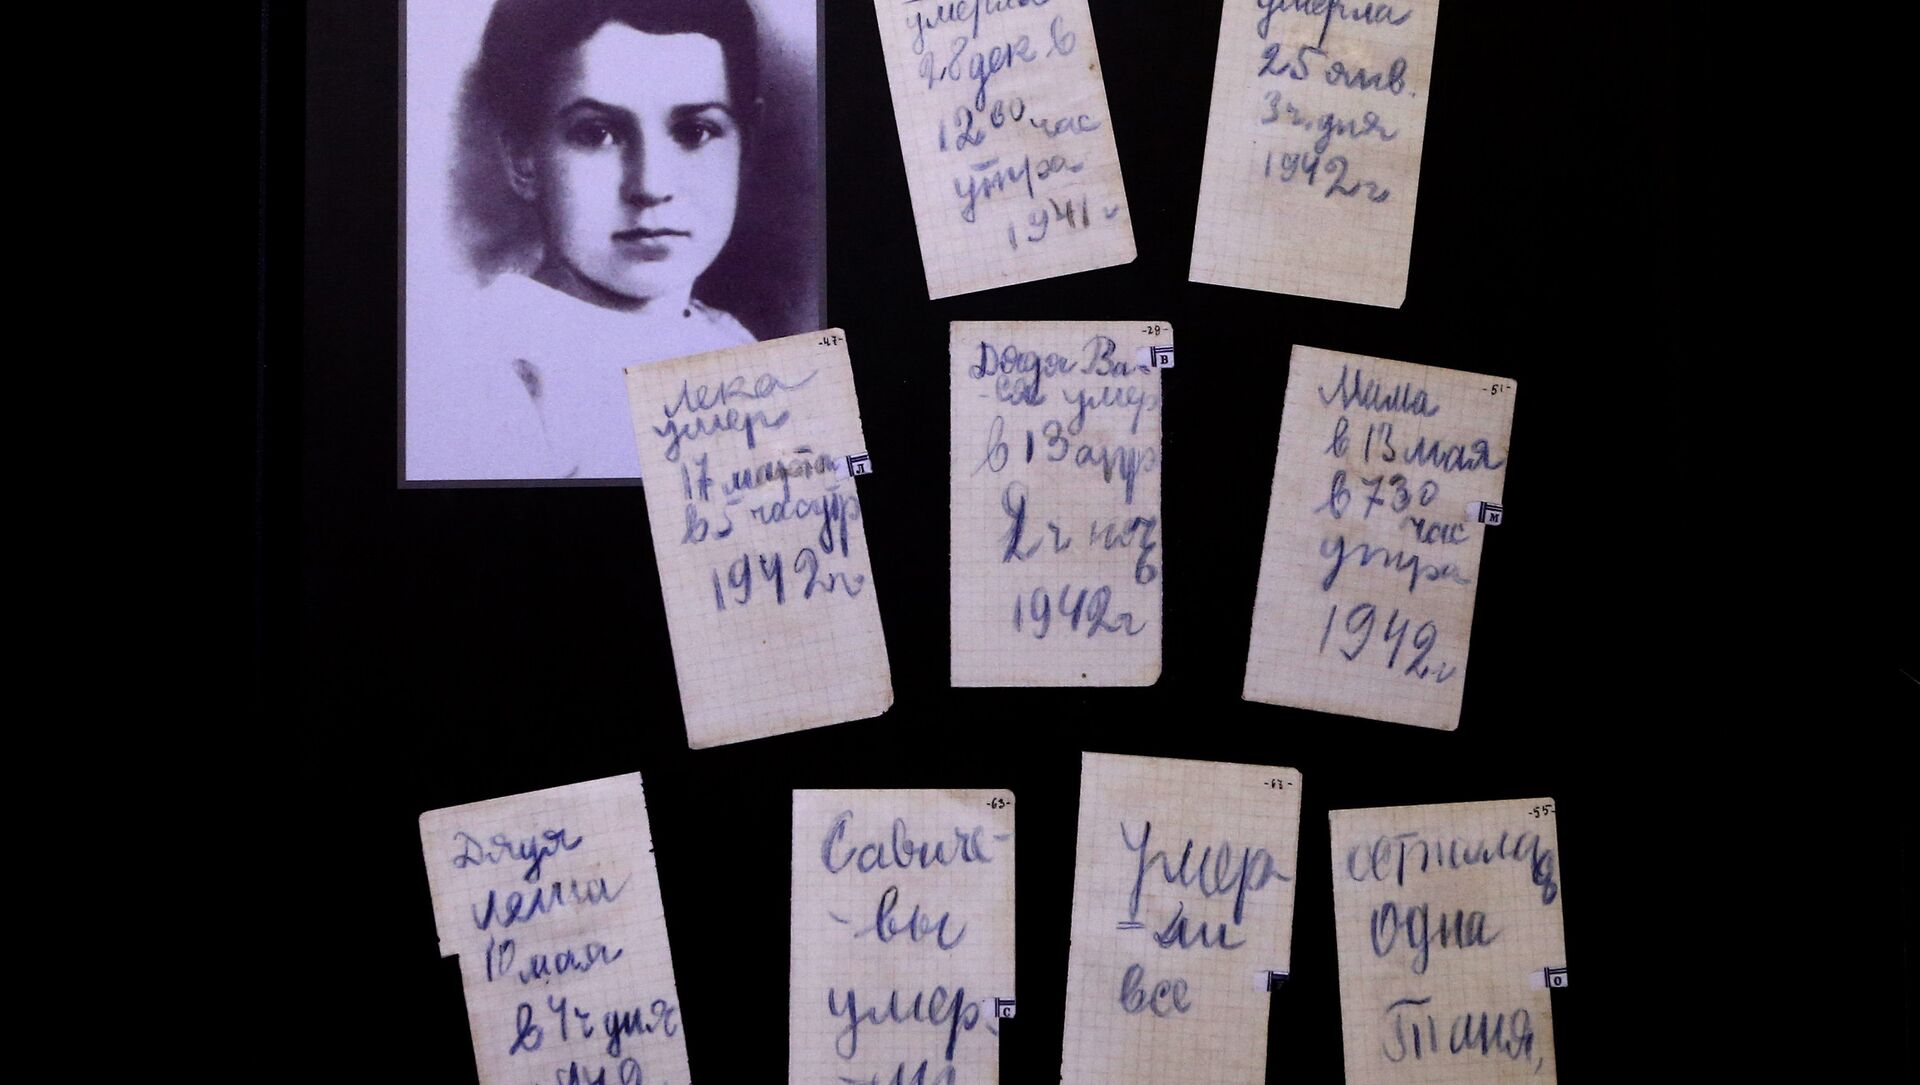 умерла
28 дек в
12 00 час
утра
1941 г
умерла
25 янв.
3 ч. дня
1942 г
-47-
Лека
умер
17 марта
в 5 час утр
1942 г
Л
-29-
Дядя Ва-
-ся умер
в 13 апр
2 ч ноч
ь
1942 г
В
-51-
Мама
в 13 мая
в 7 30
час
утра
1942 г
М
Дядя
Леша
10 мая
в 4 ч дня
1942
-63-
Савиче-
-вы
умер-
-ли
С
Умер
=ли
все
-55-
осталась
одна
Таня,
О